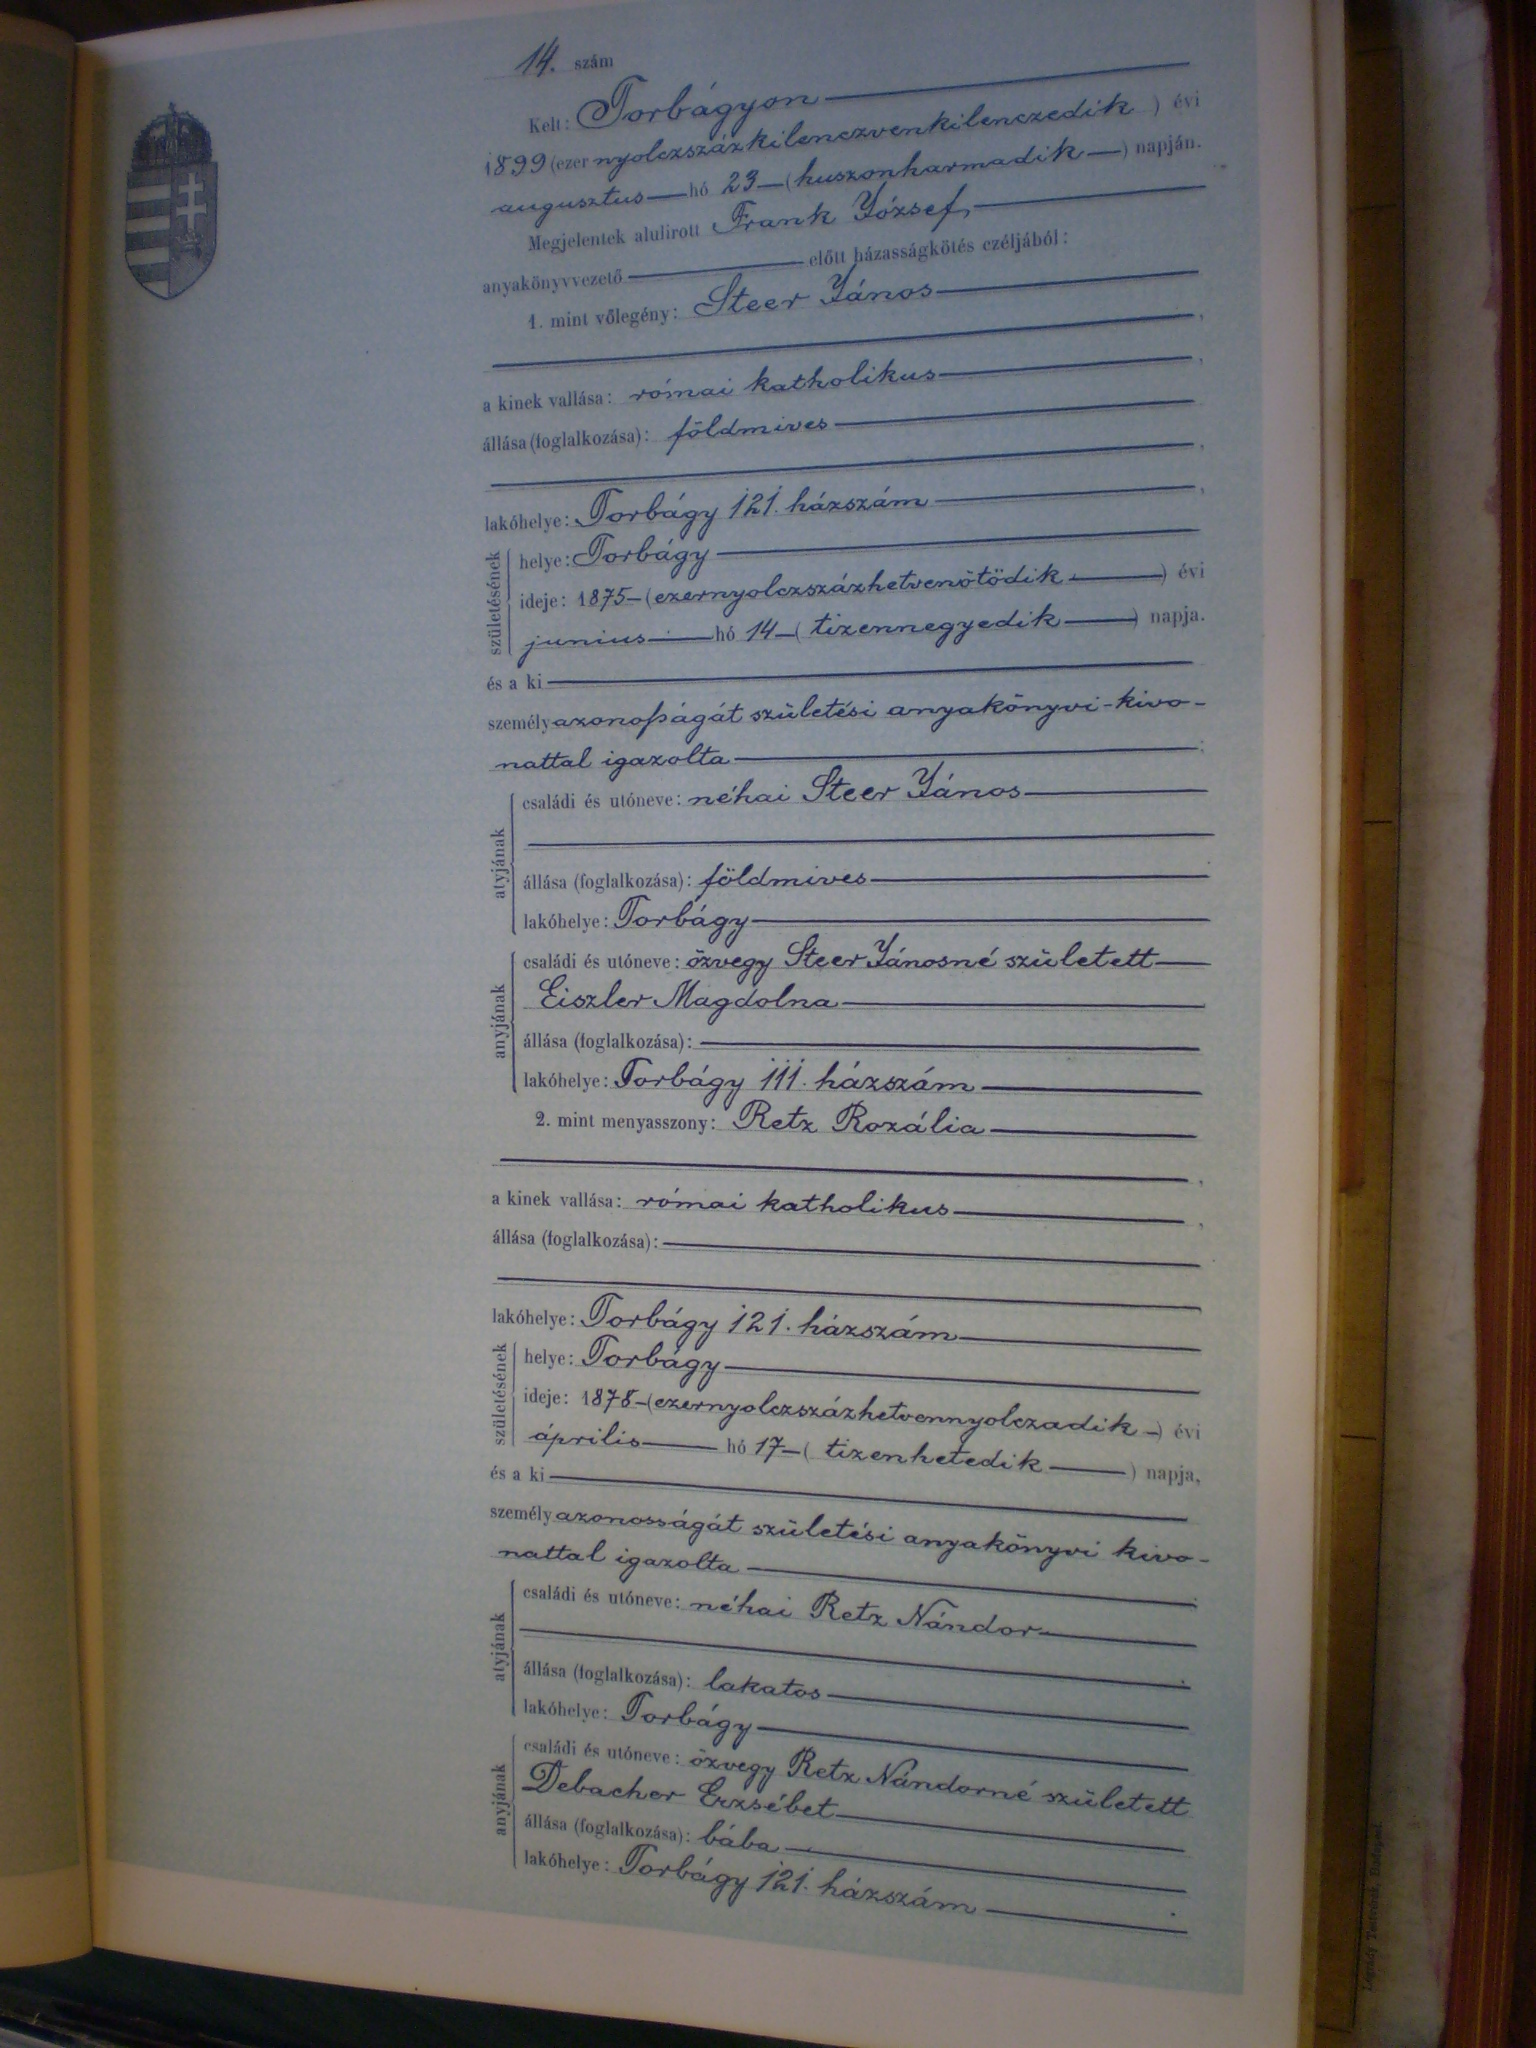 14. szám
Kelt: Torbágyon
1899 (ezer nyolczszázkilenczvenkilenczedik) évi
augusztus hó 23 (huszonharmadik) napján.
Megjelentek alulirott Frank József,
anyakönyvvezető előtt házasságkötés czéljából:
1. mint vőlegény: Steer János
a kinek vallása: római katholikus
állása (foglalkozása): földmives
lakóhelye: Torbágy 121. házszám
születésének
helye: Torbágy
ideje: 1875 (ezernyolczszázhetvenötödik) évi
junius hó 14 (tizennegyedik) napja.
és a ki
személyazonosságát születési anyakönyvi-kivo-
nattal igazolta
atyjának
családi és utóneve: néhai Steer János
állása (foglalkozása): földmives
lakóhelye: Torbágy
anyjának
családi és utóneve: özvegy Steer Jánosné született
Eiszler Magdolna
állása (foglalkozása):
lakóhelye: Torbágy 111. házszám
2. mint menyasszony: Retz Rozália
a kinek vallása: római katholikus
állása (foglalkozása):
lakóhelye: Torbágy 121. házszám
születésének
helye: Torbágy
ideje: 1878 (ezernyolczszázhetvennyolczadik) évi
április hó 17 (tizenhetedik) napja,
és a ki
személyazonosságát születési anyakönyvi kivo-
nattal igazolta
atyjának
családi és utóneve: néhai Retz Nándor
állása (foglalkozása): lakatos
lakóhelye: Torbágy
anyjának
családi és utóneve: özvegy Retz Nándorné született
Debacher Erzsébet
állása (foglalkozása): bába
lakóhelye: Torbágy 121. házszám